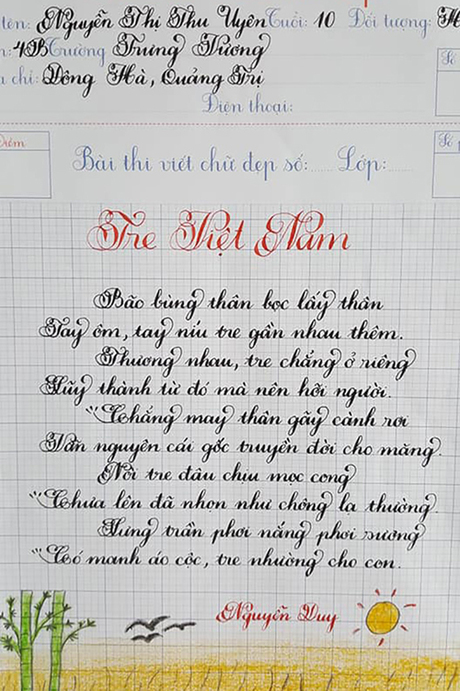 tên: Nguyễn Thị Thu Uyên Tuổi: 10 Đối tượng: H
: 4B Trường Trưng Vương
chỉ: Đông Hà, Quảng Trị
Điện thoại:
Điểm
Bài thi viết chữ đẹp số: ...... Lớp: ......
Tre Việt Nam
Bão bùng thân bọc lấy thân
Tay ôm, tay níu tre gần nhau thêm.
Thương nhau, tre chẳng ở riêng
Lũy thành từ đó mà nên hỡi người.
Chẳng may thân gãy cành rơi
Vẫn nguyên cái gốc truyền đời cho măng.
Nòi tre đâu chịu mọc cong
Chưa lên đã nhọn như chông lạ thường.
Lưng trần phơi nắng phơi sương
Có manh áo cộc, tre nhường cho con.
Nguyễn Duy